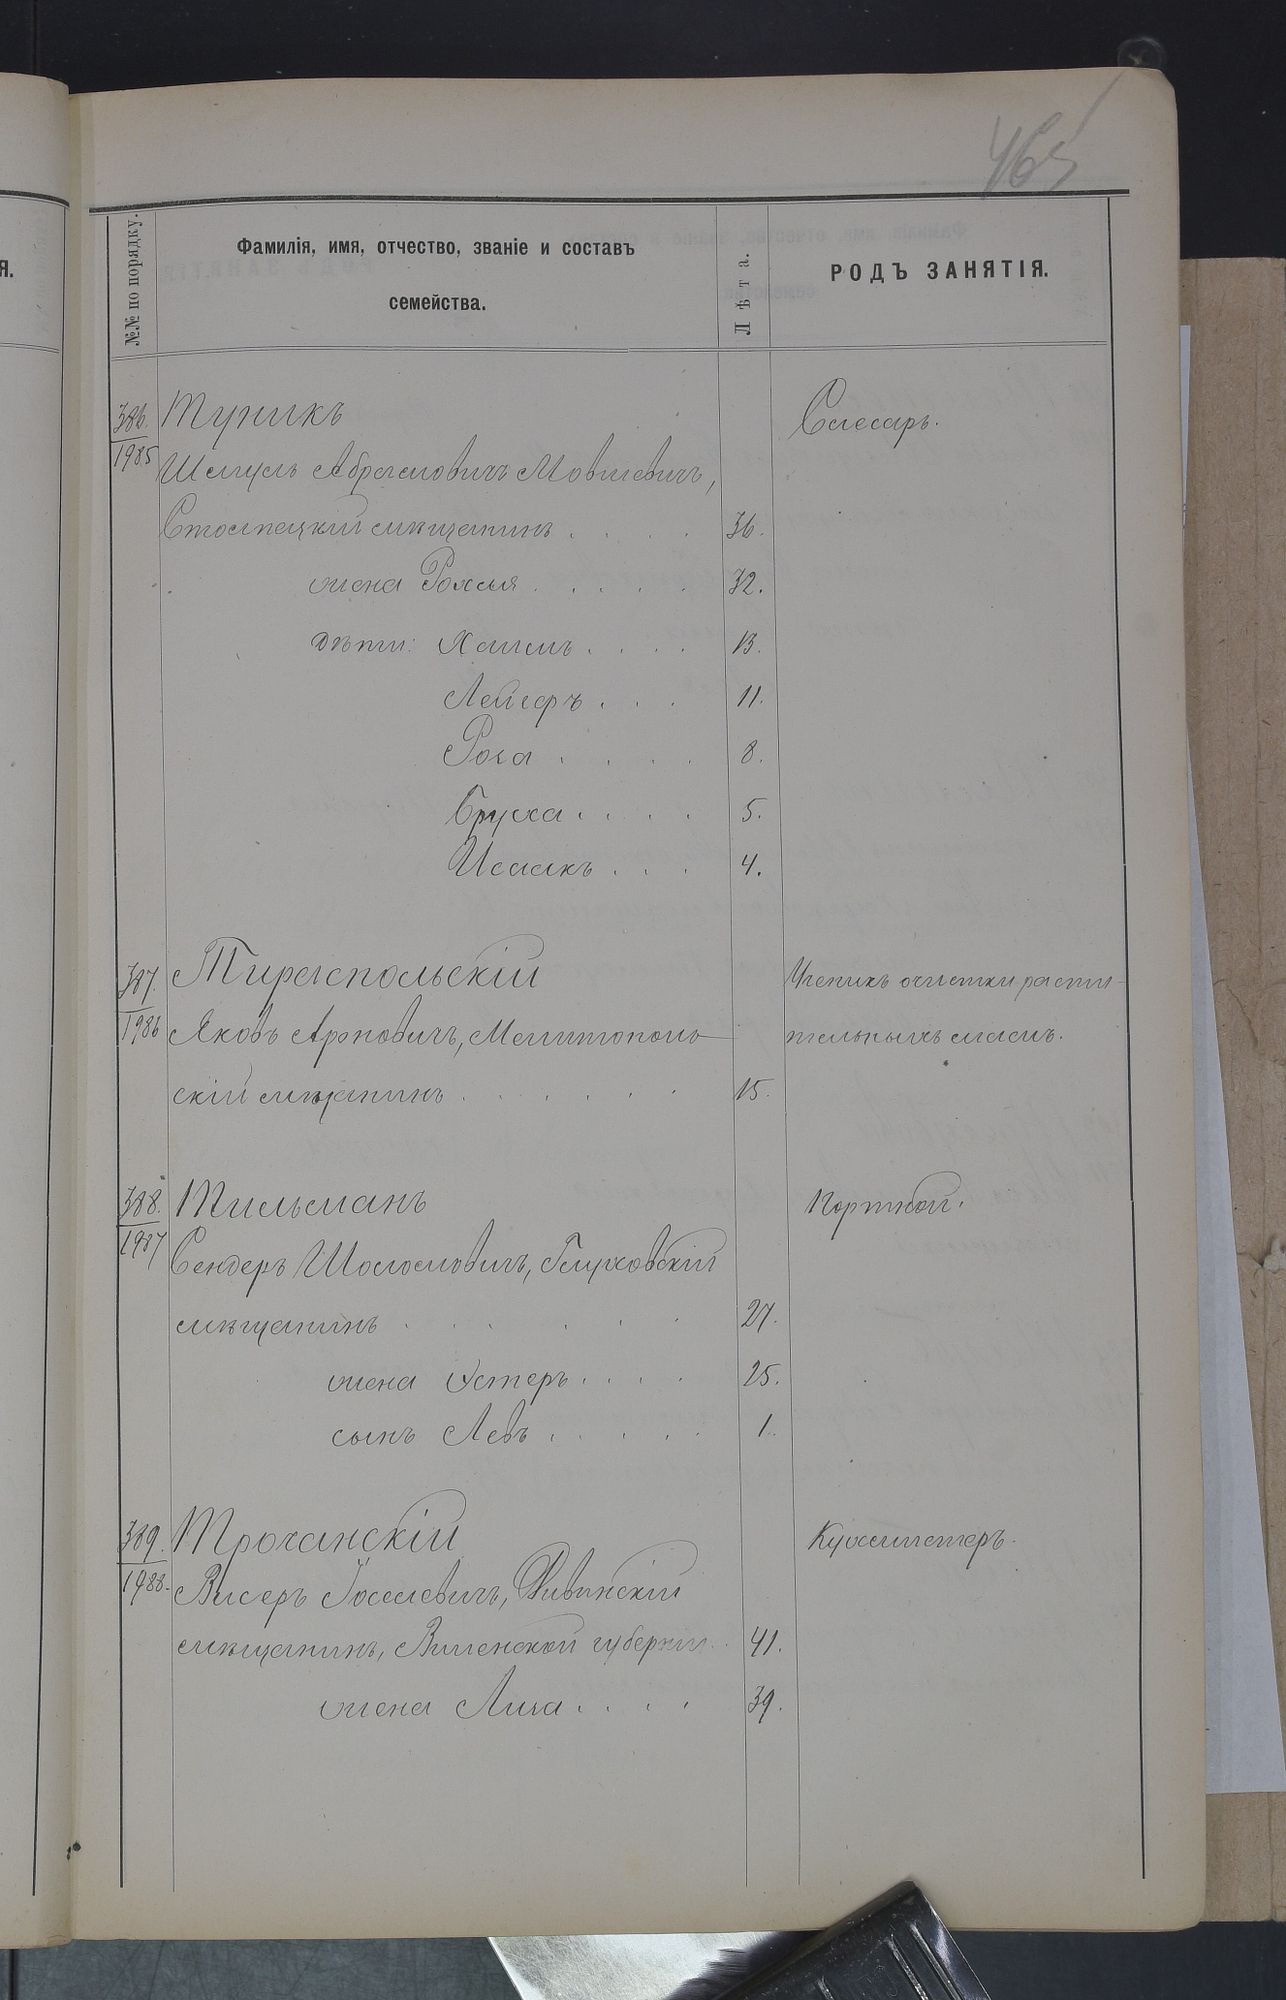 465
Я.
№№ по порядку.
Фамилія, имя, отчество, званіе и составъ
семейства.
Лѣта.
РОДЪ ЗАНЯТІЯ.
386.
1985
Туникъ
Слесарь.
Шмуль Абрамовичъ Мовшевичъ,
Столпецкій мѣщанинъ . . . . 36.
жена Рохля . . . . . 32.
дѣти: Хаимъ . . . . 13.
Лейзеръ . . . 11.
Роха . . . . . 8.
Бруха . . . . 5.
Исаакъ . . . 4.
387.
1986
Тираспольскій
Ученикъ очистки расти-
Яковъ Ароновичъ, Мелитополь-
тельныхъ маслъ.
скій мѣщанинъ . . . . . . 15.
388.
1987
Тильманъ
Портной.
Сендеръ Шоломовичъ, Глуховскій
мѣщанинъ . . . . . . 27.
жена Эстеръ . . . . 25.
сынъ Левъ . . . . . 1.
389.
1988.
Трочанскій
Кухмистеръ.
Іоселевичъ, Дивинскій
мѣщанинъ, Виленской губерніи . . 41.
жена . . . . 39.